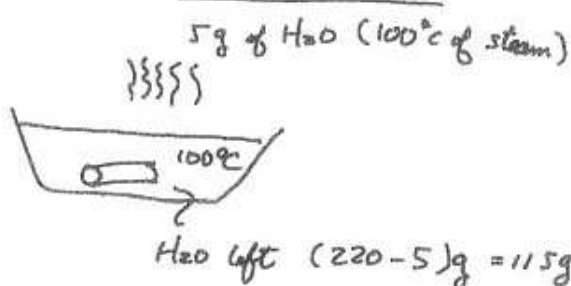 5g of H2O (100°C of steam)
100℃
H2O left (220-5)g = 115g